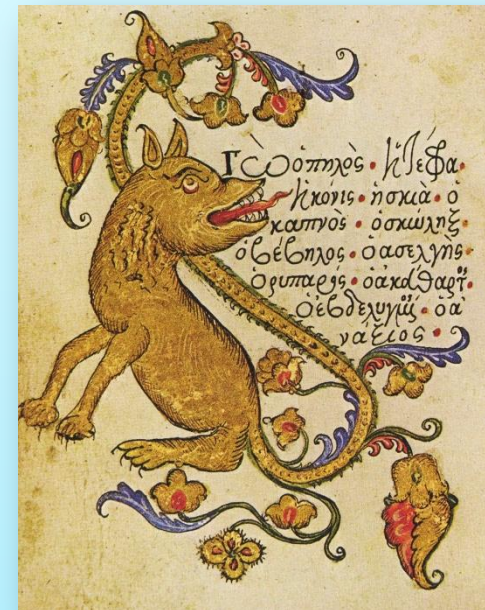 Γὼ ὁπηλὸς · ἡ τέφα ·
ἡκόνις · ἡσκιὰ · ὁ
καπνὸς · ὁσκώληξ
ὁβέβηλος · ὁασελγης ·
ὁρυπαρός · ὁακάθαρτ
ὁεβδελυγμ · ὁα
νάξιος ·